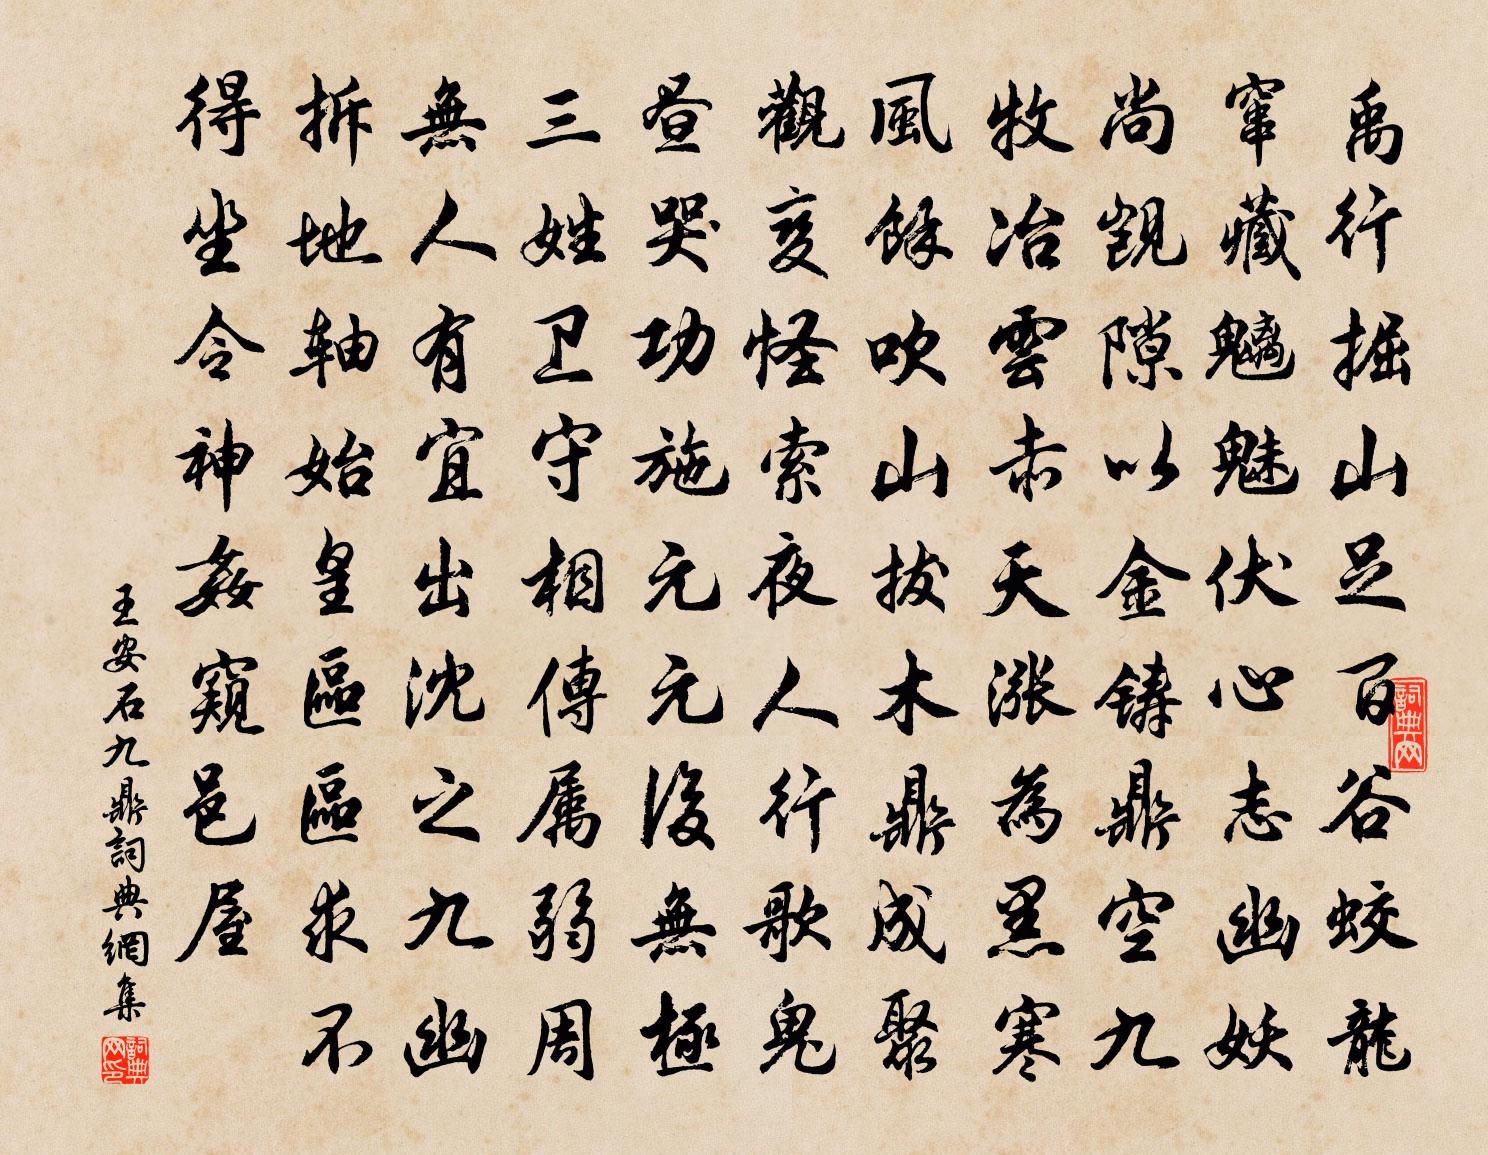 禹行掘山足百谷蛟龍
竄藏魑魅伏心志幽妖
尚覬隙以金鑄鼎空九
牧冶雲赤天漲為黑寒
風餘吹山拔木鼎成聚
觀變怪索夜人行歌鬼
晝哭功施元元後無極
三姓卫守相傳屬弱周
無人有宜出沈之九幽
拆地軸始皇區區求不
得坐令神姦窺邑屋
王安石九鼎詞典網集
詞典网
詞典网印